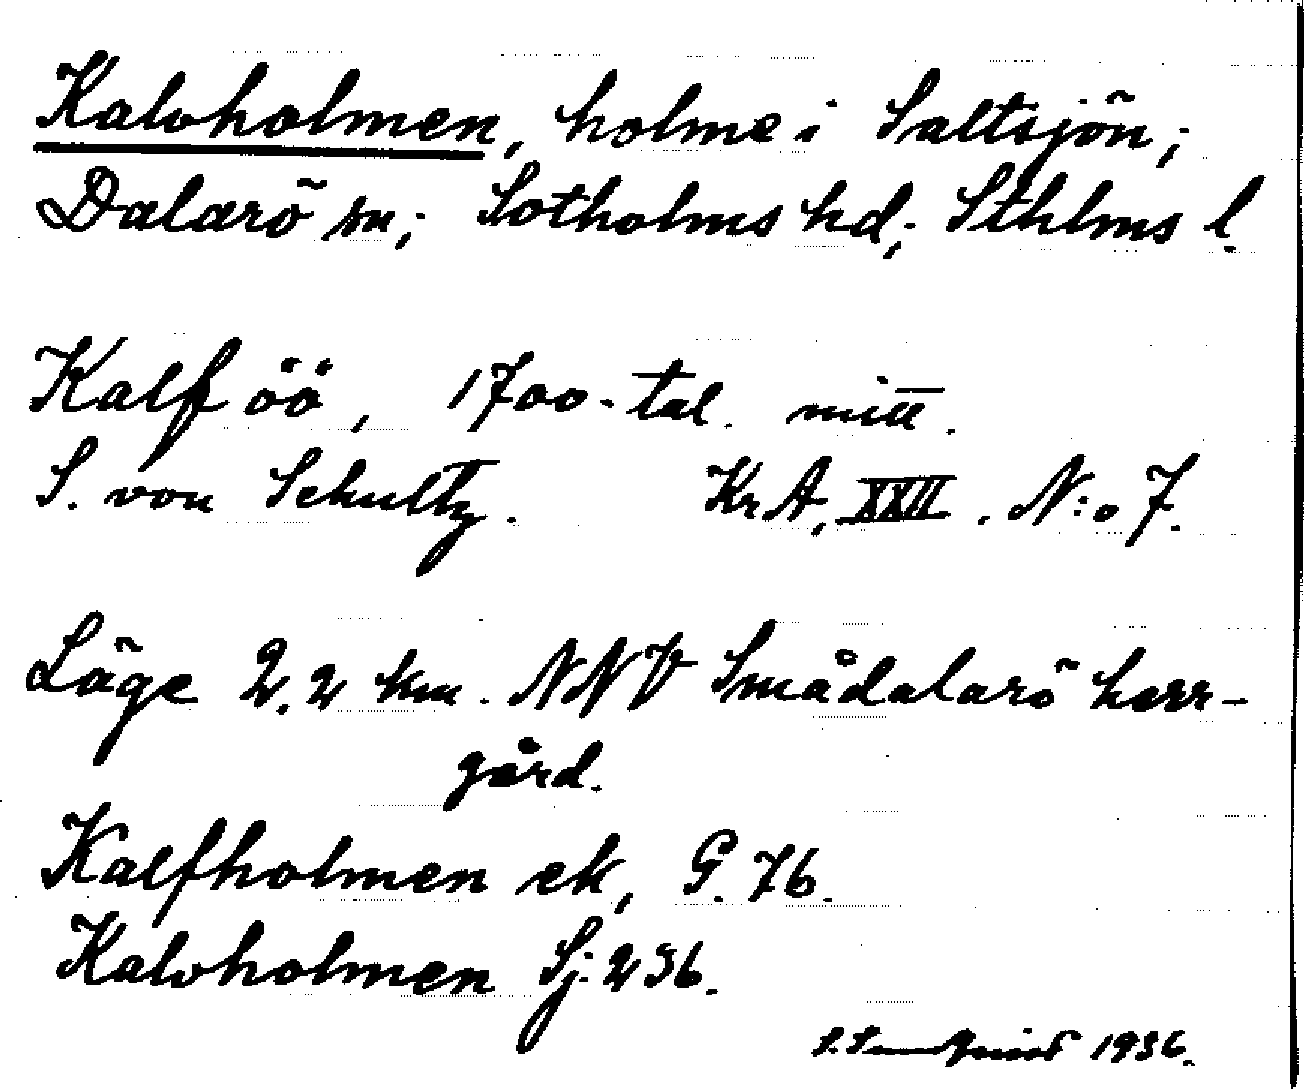 Kalvholmen, holme i Saltsjön;
Dalarö sn; Sotholms hd; Sthlms l.
Kalf öö, 1700-tal. mitt.
S. von Schultz. KrA, XXII. N:o 7.
Läge 2,2 km. NNV Smådalarö herr-
gård.
Kalfholmen ek, G. 76.
Kalvholmen Sj: 236.
1936.